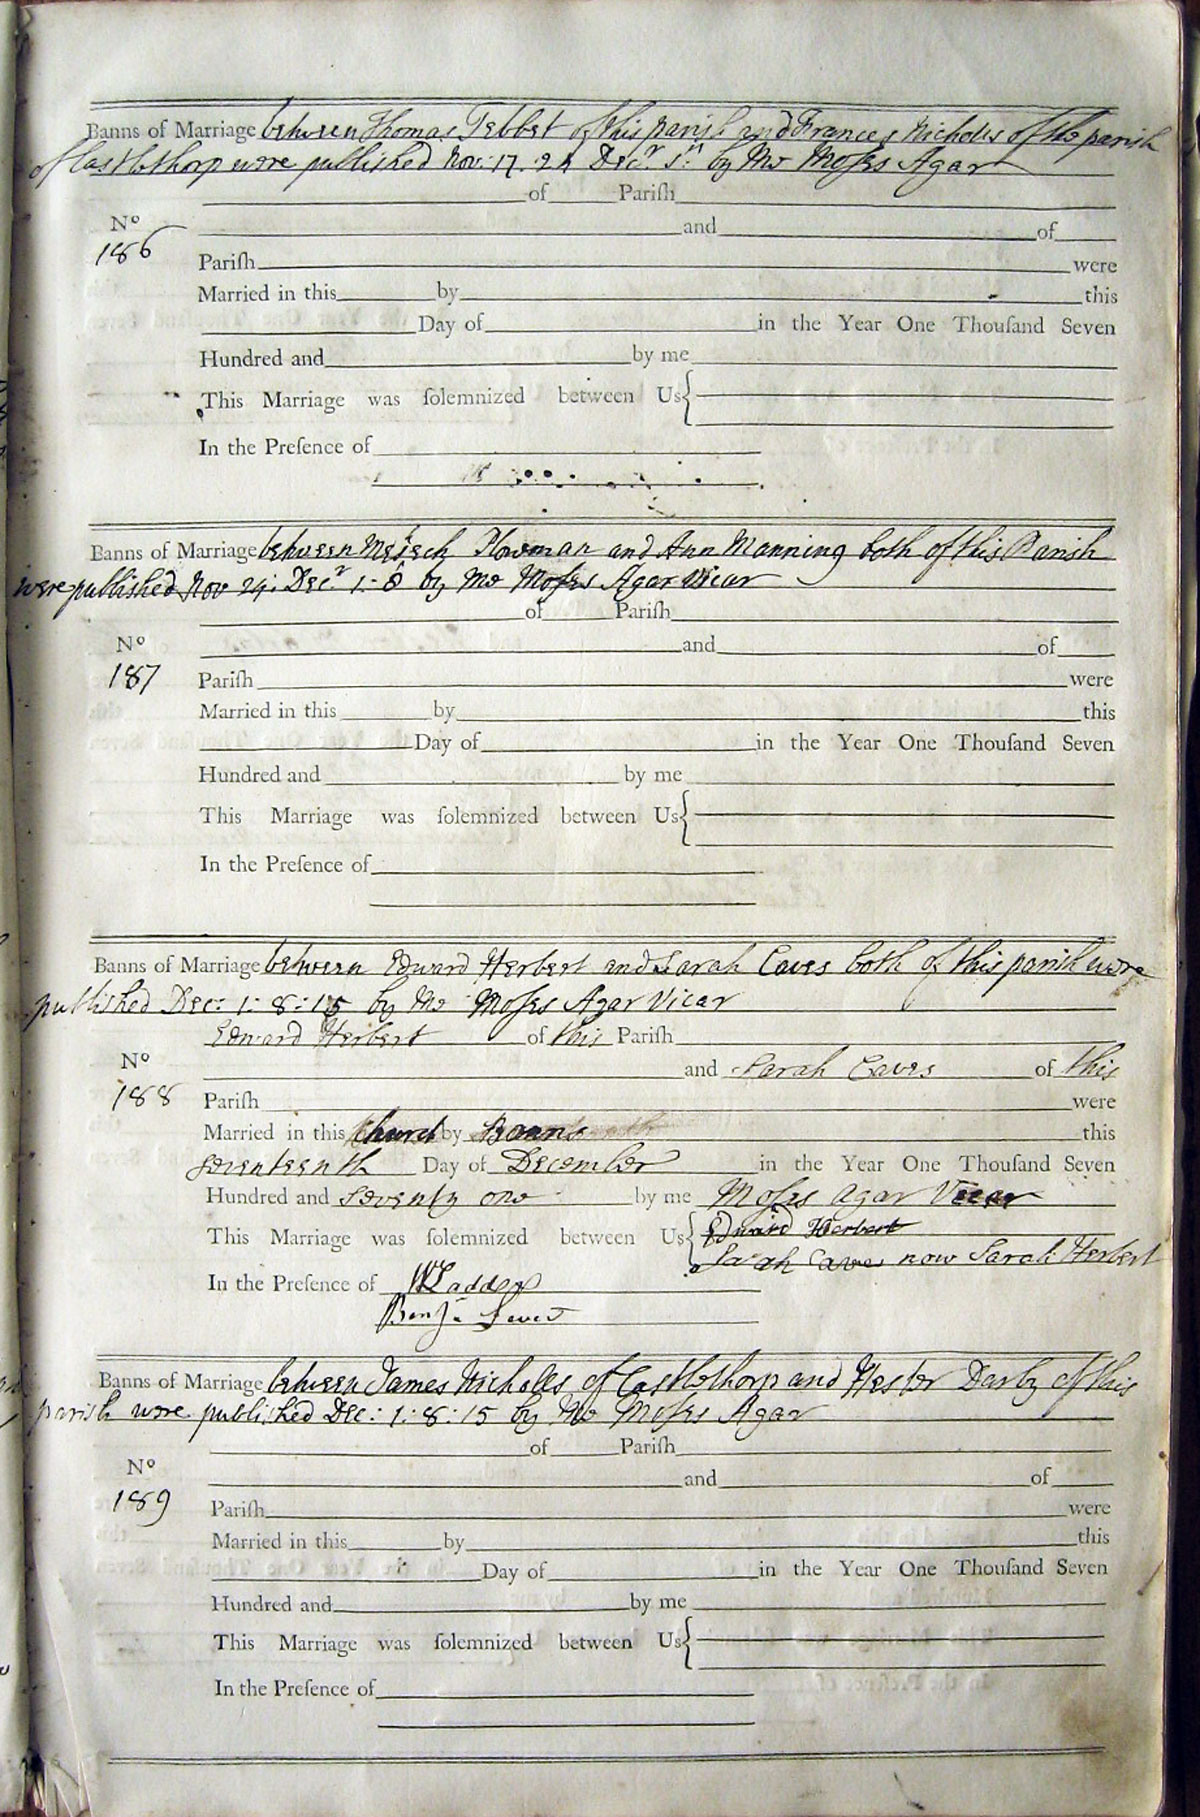 Banns of Marriage between Thomas Tebbet of this parish and Frances Nicholes of the parish
of Castlethorp were published Nov: 17. 24 Decr. 1st by me Moses Agar
of Pariſh
No
and of
186
Pariſh were
Married in this by this
Day of in the Year One Thouſand Seven
Hundred and by me
This Marriage was ſolemnized between Us
In the Preſence of
Banns of Marriage between Mesech Plowman and Ann Manning both of this Parish
were published Nov 24: Decr 1: 8 by me Moses Agar Vicar
of Pariſh
No
and of
187
Pariſh were
Married in this by this
Day of in the Year One Thouſand Seven
Hundred and by me
This Marriage was ſolemnized between Us
In the Preſence of
Banns of Marriage between Edward Herbert and Sarah Caves both of this parish were
published Dec: 1: 8: 15 by me Moses Agar Vicar
Edward Herbert of this Pariſh
No
and Sarah Caves of this
188
Pariſh were
Married in this Church by Banns this
seventeenth Day of December in the Year One Thouſand Seven
Hundred and seventy one by me Moses Agar Vicar
Edward Herbert
This Marriage was ſolemnized between Us
Sarah Caves now Sarah Herbert
In the Preſence of
Benjn
Banns of Marriage between James Nicholls of Castlethorp and Hester Darby of this
parish were published Dec: 1: 8: 15 by me Moses Agar
of Pariſh
No
and of
189
Pariſh were
Married in this by this
Day of in the Year One Thouſand Seven
Hundred and by me
This Marriage was ſolemnized between Us
In the Preſence of